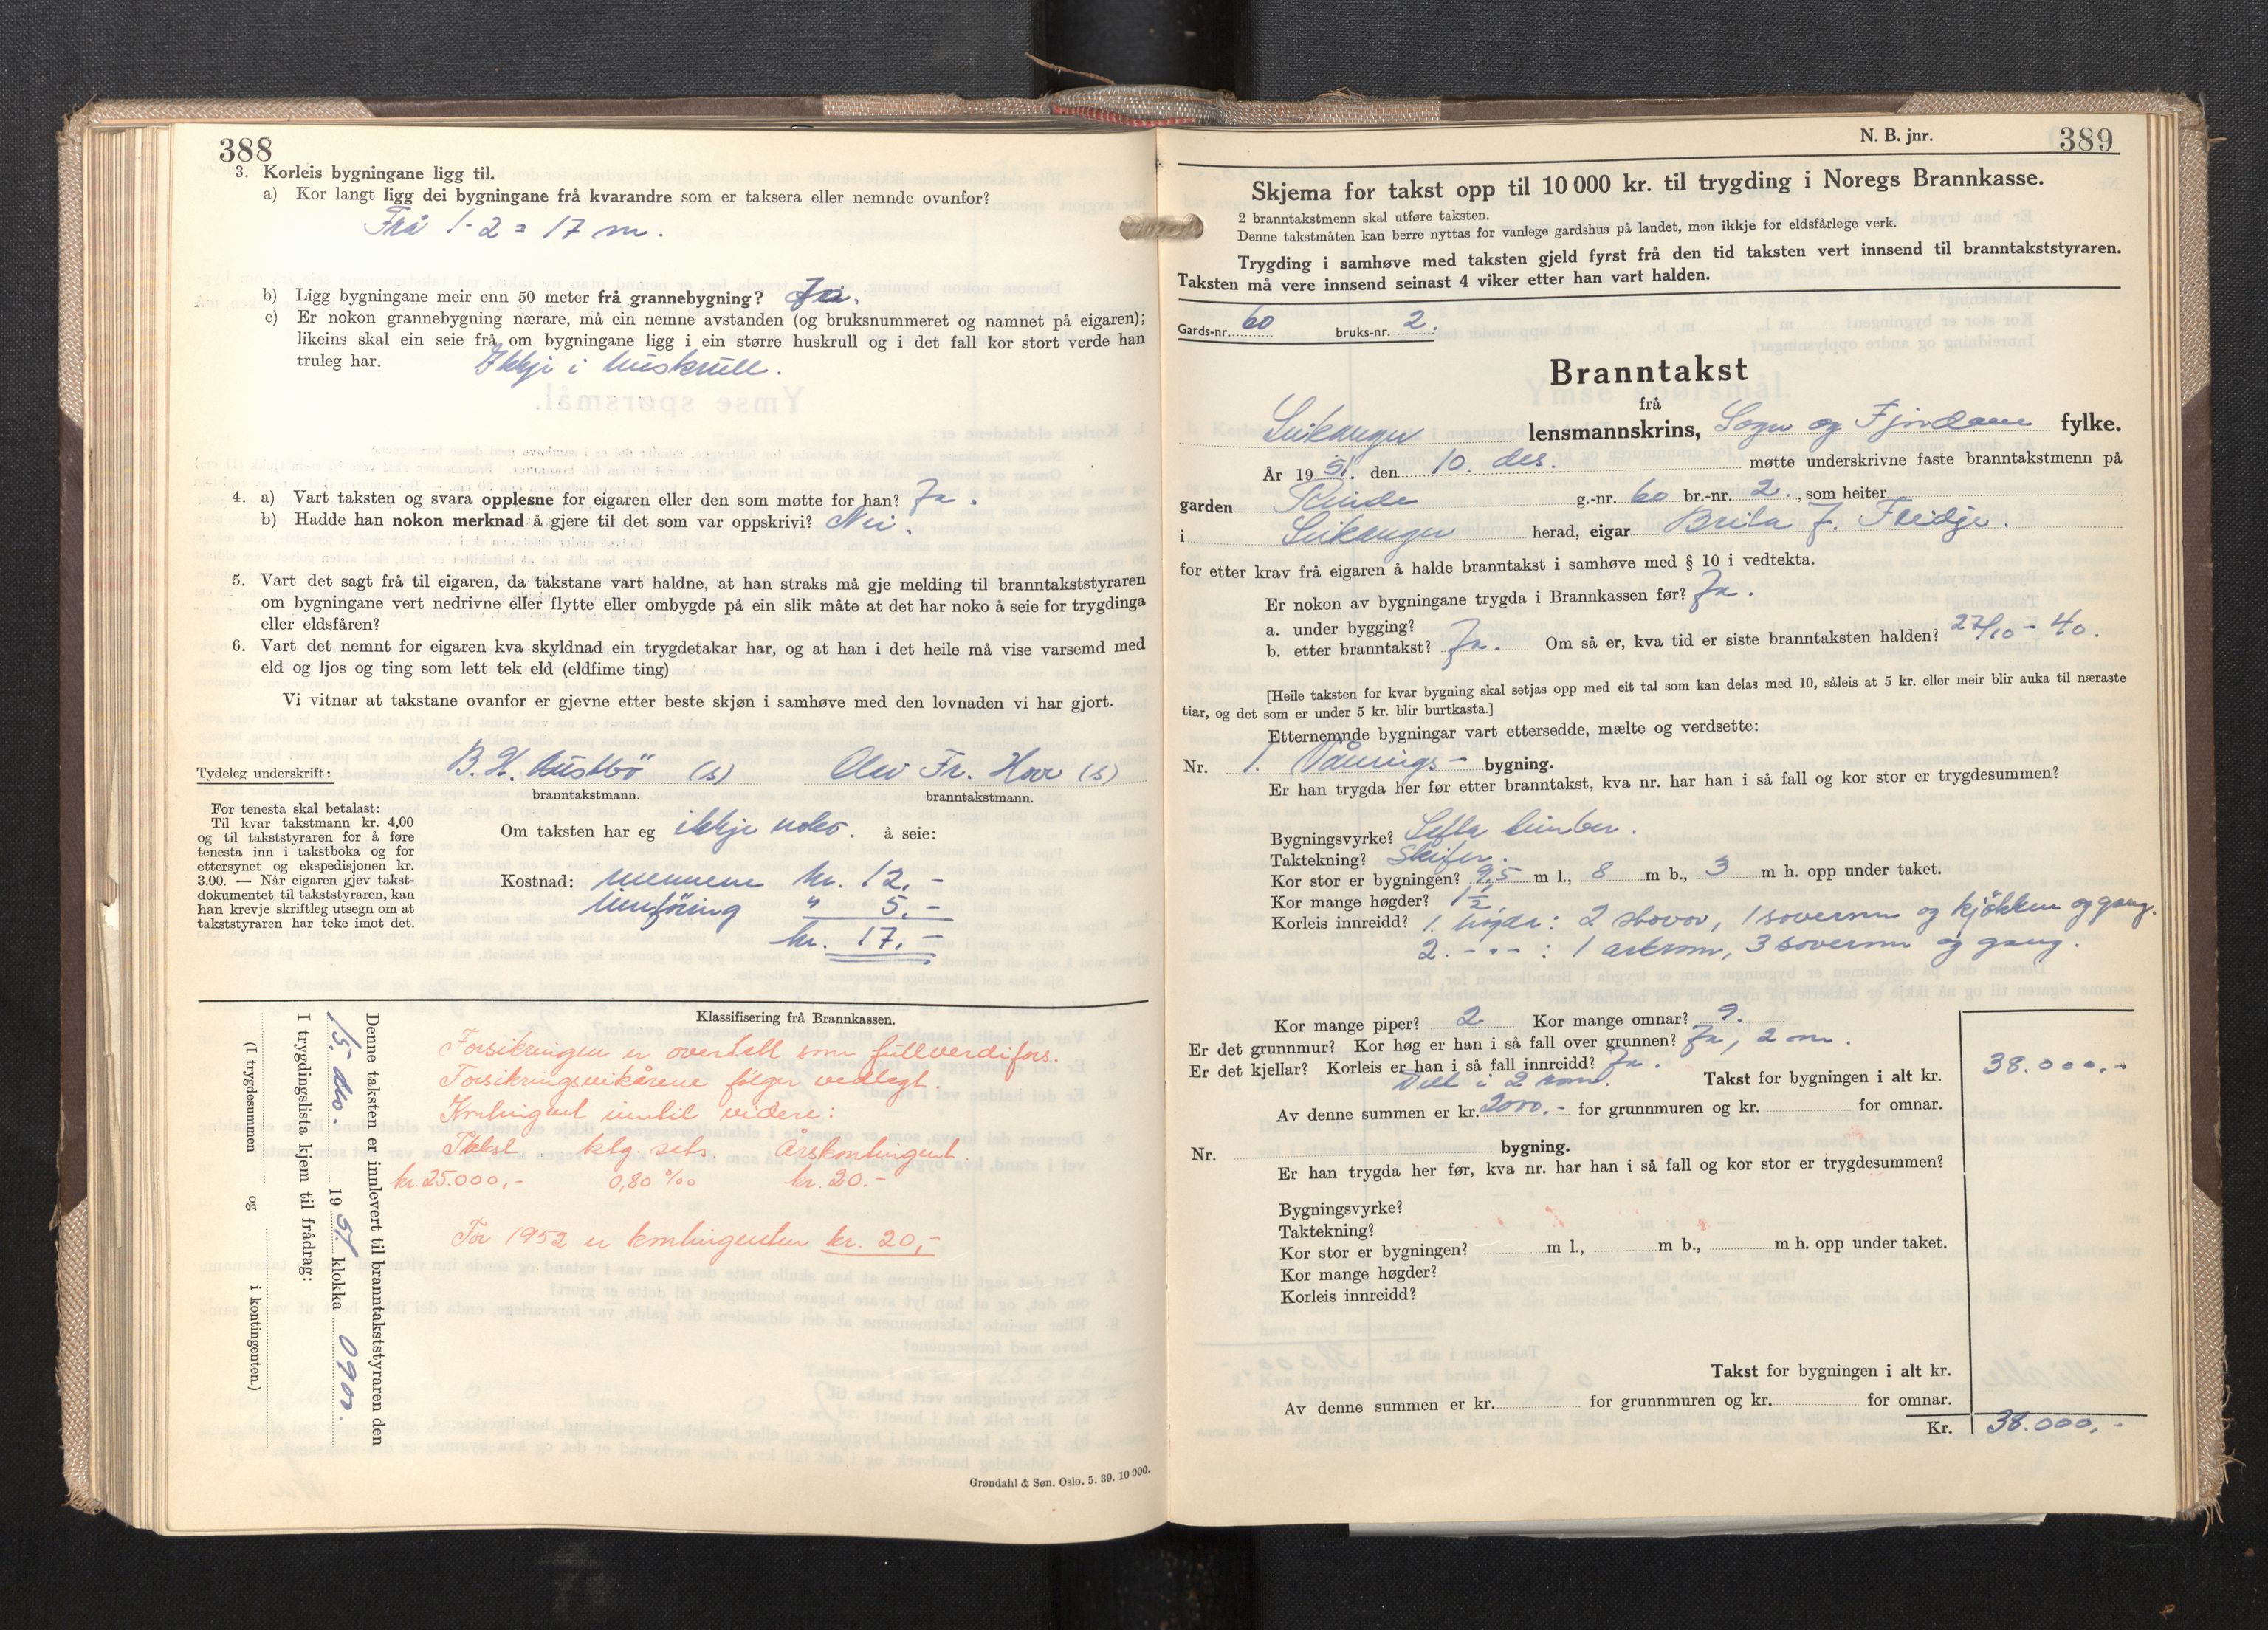 388
3. Korleis bygningane ligg til.
a) Kor langt ligg dei bygningane frå kvarandre som er taksera eller nemnde ovanfor?
Frå 1-2 = 17 m.
b) Ligg bygningane meir enn 50 meter frå grannebygning? Ja.
c) Er nokon grannebygning nærare, må ein nemne avstanden (og bruksnummeret og namnet på eigaren);
likeins skal ein seie frå om bygningane ligg i ein større huskrull og i det fall kor stort verde han
truleg har. Ikkje i huskrull.
4. a) Vart taksten og svara opplesne for eigaren eller den som møtte for han? Ja.
b) Hadde han nokon merknad å gjere til det som var oppskrivi? Nei.
5. Vart det sagt frå til eigaren, da takstane vart haldne, at han straks må gje melding til branntakststyraren
om bygningane vert nedrivne eller flytte eller ombygde på ein slik måte at det har noko å seie for trygdinga
eller eldsfåren?
6. Vart det nemnt for eigaren kva skyldnad ein trygdetakar har, og at han i det heile må vise varsemd med
eld og ljos og ting som lett tek eld (eldfime ting)
Vi vitnar at takstane ovanfor er gjevne etter beste skjøn i samhøve med den lovnaden vi har gjort.
Tydeleg underskrift: B. H. Austbö (s) Olav Fr. Hov (s)
branntakstmann. branntakstmann.
For tenesta skal betalast:
Til kvar takstmann kr. 4,00
og til takststyraren for å føre
tenesta inn i takstboka og for
ettersynet og ekspedisjonen kr.
3.00. — Når eigaren gjev takst-
dokumentet til takststyraren, kan
han krevje skriftleg utsegn om at
takststyraren har teke imot det.
Om taksten har eg ikkje noko. å seie:
Kostnad: mennene kr. 12,-
Innföring " 5.-
kr. 17,-
Denne taksten er innlevert til branntakststyraren den
15. des. 1951 klokka 0900.
I trygdingslista kjem til frådrag:
(I trygdesummen og i kontingenten.)
Klassifisering frå Brannkassen.
Forsikringen er overtatt som fullverdifors.
Forsikringsvilkårene følger vedlagt.
Kontingent inntil videre:
Takst ktg. sats. Årskontingent.
kr. 25.000,- 0,80 ‰ kr. 20.-
For 1952 er kontingenten kr. 20,-
Grøndahl & Søn. Oslo. 5. 39. 10 000.
N. B. jnr. 389
Skjema for takst opp til 10 000 kr. til trygding i Noregs Brannkasse.
2 branntakstmenn skal utføre taksten.
Denne takstmåten kan berre nyttas for vanlege gardshus på landet, men ikkje for eldsfårlege verk.
Trygding i samhøve med taksten gjeld fyrst frå den tid taksten vert innsend til branntakststyraren.
Taksten må vere innsend seinast 4 viker etter han vart halden.
Gards-nr. 60 bruks-nr. 2.
Branntakst
frå
Leikanger lensmannskrins, Sogn og Fjordane fylke.
År 1951. den 10. des. møtte underskrivne faste branntakstmenn på
garden Rinde g.-nr. 60 br.-nr. 2., som heiter
i Leikanger herad, eigar Brita J. Feidje.
for etter krav frå eigaren å halde branntakst i samhøve med § 10 i vedtekta.
Er nokon av bygningane trygda i Brannkassen før? Ja.
a. under bygging?
b. etter branntakst? Ja. Om så er, kva tid er siste branntaksten halden? 27/10 - 40.
[Heile taksten for kvar bygning skal setjas opp med eit tal som kan delas med 10, såleis at 5 kr. eller meir blir auka til næraste
tiar, og det som er under 5 kr. blir burtkasta.]
Etternemnde bygningar vart ettersedde, mælte og verdsette:
Nr. 1. Vånings- bygning.
Er han trygda her før etter branntakst, kva nr. har han i så fall og kor stor er trygdesummen?
Bygningsvyrke? Lefta timber.
Taktekning? Skifer.
Kor stor er bygningen? 9,5 m l., 8 m b., 3 m h. opp under taket.
Kor mange høgder? 1 1/2
Korleis innreidd? 1. högde: 2 stovor, 1 soverom og kjökken og gang.
2. - - - : 1 arkrom, 3 soverom og gang.
Kor mange piper? 2 Kor mange omnar? 9.
Er det grunnmur? Kor høg er han i så fall over grunnen? Ja, 2 m.
Er det kjellar? Korleis er han i så fall innreidd? Ja.
Delt i 2 rom. Takst for bygningen i alt kr. 38.000.-
Av denne summen er kr. 2000.- for grunnmuren og kr. for omnar.
Nr. bygning.
Er han trygda her før, kva nr. har han i så fall og kor stor er trygdesummen?
Bygningsvyrke?
Taktekning?
Kor stor er bygningen? m l., m b., m h. opp under taket.
Kor mange høgder?
Korleis innreidd?
Takst for bygningen i alt kr.
Av denne summen er kr. for grunnmuren og kr. for omnar.
Kr. 38.000,-